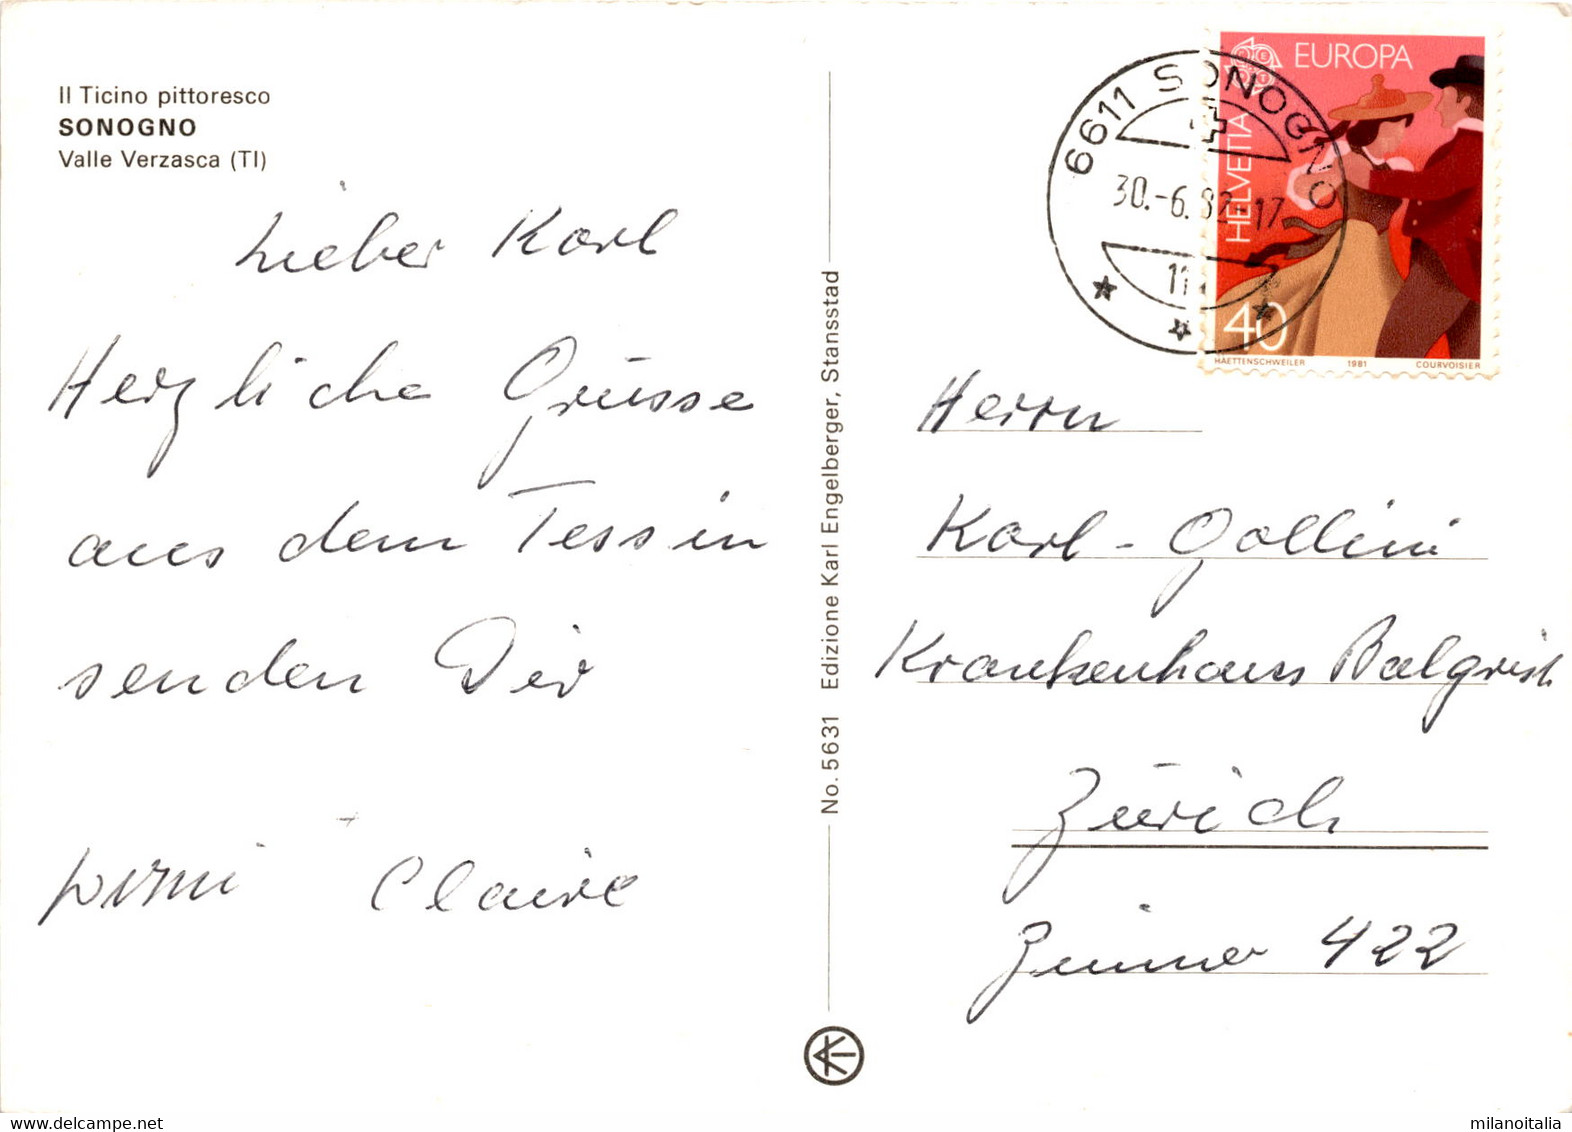 Il Ticino pittoresco
SONOGNO
Valle Verzasca (TI)
Lieber Karl
Herzliche Grüsse
aus dem Tessin
senden Dir
Claire
No. 5631 Edizione Karl Engelberger, Stansstad
6611 SONOGNO
30.-6.82-17
EUROPA
HELVETIA
40
HAETTENSCHWEILER 1981 COURVOISIER
Herrn
Karl - Gollini
Krankenhaus Balgrist
Zürich
Zimmer 422
milanoitalia